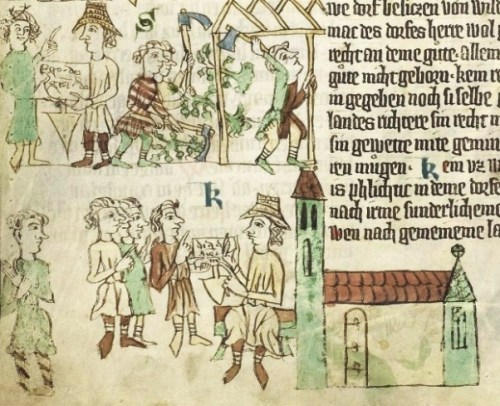 we dorf besiczen von wild
mac des dorfes herre wol g
recht an deme gute · allem
gute nicht geborn · kein
in gegeben noch si selbe
landes richtere sin recht m
sin gewette mite gemin
ren mugen · K em vz w
is phlichtic in deme dorfe
nach irme sunderlicheme
wen nach gemememe la
Ego
G
K